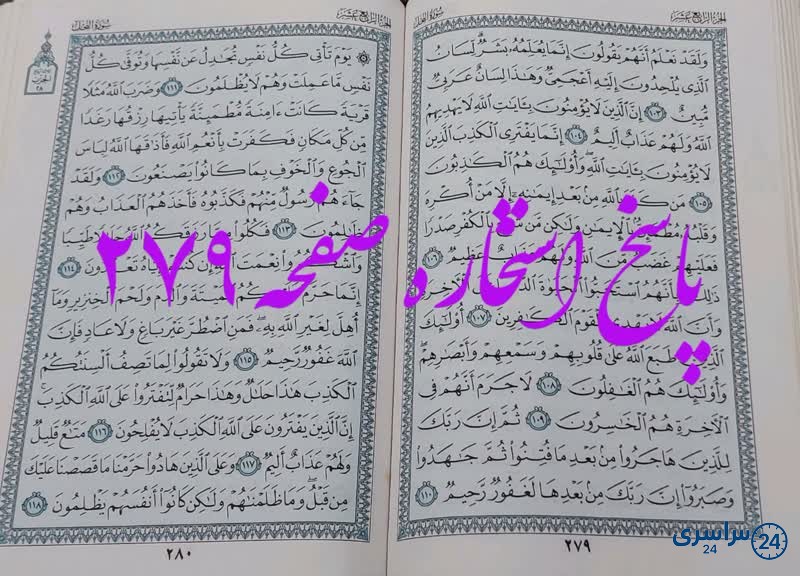 الجزء الرابع عشر
سورة النحل
وَلَقَدْ نَعْلَمُ أَنَّهُمْ يَقُولُونَ إِنَّمَا يُعَلِّمُهُ بَشَرٌ لِّسَانُ
الَّذِي يُلْحِدُونَ إِلَيْهِ أَعْجَمِيٌّ وَهَٰذَا لِسَانٌ عَرَبِيٌّ
مُّبِينٌ ١٠٣ إِنَّ الَّذِينَ لَا يُؤْمِنُونَ بِآيَاتِ اللَّهِ لَا يَهْدِيهِمُ
اللَّهُ وَلَهُمْ عَذَابٌ أَلِيمٌ ١٠٤ إِنَّمَا يَفْتَرِي الْكَذِبَ الَّذِينَ
لَا يُؤْمِنُونَ بِآيَاتِ اللَّهِ وَأُولَٰئِكَ هُمُ الْكَاذِبُونَ
١٠٥ مَن كَفَرَ بِاللَّهِ مِن بَعْدِ إِيمَانِهِ إِلَّا مَنْ أُكْرِهَ
وَقَلْبُهُ مُطْمَئِنٌّ بِالْإِيمَانِ وَلَٰكِن مَّن شَرَحَ بِالْكُفْرِ صَدْرًا
فَعَلَيْهِمْ غَضَبٌ مِّنَ اللَّهِ وَلَهُمْ عَذَابٌ عَظِيمٌ ١٠٦
ذَٰلِكَ بِأَنَّهُمُ اسْتَحَبُّوا الْحَيَاةَ الدُّنْيَا الْآخِرَةِ
وَأَنَّ اللَّهَ لَا يَهْدِي الْقَوْمَ الْكَافِرِينَ ١٠٧ أُولَٰئِكَ
الَّذِينَ طَبَعَ اللَّهُ عَلَىٰ قُلُوبِهِمْ وَسَمْعِهِمْ وَأَبْصَارِهِمْ
وَأُولَٰئِكَ هُمُ الْغَافِلُونَ ١٠٨ لَا جَرَمَ أَنَّهُمْ فِي
الْآخِرَةِ هُمُ الْخَاسِرُونَ ١٠٩ ثُمَّ إِنَّ رَبَّكَ
لِلَّذِينَ هَاجَرُوا مِن بَعْدِ مَا فُتِنُوا ثُمَّ جَاهَدُوا
وَصَبَرُوا إِنَّ رَبَّكَ مِن بَعْدِهَا لَغَفُورٌ رَّحِيمٌ ١١٠
٢٧٩
الجزء الرابع عشر
سورة النحل
الحزب
٢٨
يَوْمَ تَأْتِي كُلُّ نَفْسٍ تُجَادِلُ عَن نَّفْسِهَا وَتُوَفَّىٰ كُلُّ
نَفْسٍ مَّا عَمِلَتْ وَهُمْ لَا يُظْلَمُونَ ١١١ وَضَرَبَ اللَّهُ مَثَلًا
قَرْيَةً كَانَتْ آمِنَةً مُّطْمَئِنَّةً يَأْتِيهَا رِزْقُهَا رَغَدًا
مِّن كُلِّ مَكَانٍ فَكَفَرَتْ بِأَنْعُمِ اللَّهِ فَأَذَاقَهَا اللَّهُ لِبَاسَ
الْجُوعِ وَالْخَوْفِ بِمَا كَانُوا يَصْنَعُونَ ١١٢ وَلَقَدْ
جَاءَهُمْ رَسُولٌ مِّنْهُمْ فَكَذَّبُوهُ فَأَخَذَهُمُ الْعَذَابُ وَهُمْ
ظَالِمُونَ ١١٣ فَكُلُوا مِمَّا رَزَقَكُمُ اللَّهُ حَلَالًا طَيِّبًا
وَاشْكُرُوا نِعْمَتَ اللَّهِ إِن كُنتُمْ إِيَّاهُ تَعْبُدُونَ ١١٤
إِنَّمَا حَرَّمَ عَلَيْكُمُ الْمَيْتَةَ وَالدَّمَ وَلَحْمَ الْخِنزِيرِ وَمَا
أُهِلَّ لِغَيْرِ اللَّهِ بِهِ فَمَنِ اضْطُرَّ غَيْرَ بَاغٍ وَلَا عَادٍ فَإِنَّ
اللَّهَ غَفُورٌ رَّحِيمٌ ١١٥ وَلَا تَقُولُوا لِمَا تَصِفُ أَلْسِنَتُكُمُ
الْكَذِبَ هَٰذَا حَلَالٌ وَهَٰذَا حَرَامٌ لِّتَفْتَرُوا عَلَى اللَّهِ الْكَذِبَ
إِنَّ الَّذِينَ يَفْتَرُونَ عَلَى اللَّهِ الْكَذِبَ لَا يُفْلِحُونَ ١١٦ مَتَاعٌ قَلِيلٌ
وَلَهُمْ عَذَابٌ أَلِيمٌ ١١٧ وَعَلَى الَّذِينَ هَادُوا حَرَّمْنَا مَا قَصَصْنَا عَلَيْكَ
مِن قَبْلُ وَمَا ظَلَمْنَاهُمْ وَلَٰكِن كَانُوا أَنفُسَهُمْ يَظْلِمُونَ ١١٨
٢٨٠
پاسخ استخاره صفحه ۲۷۹
سراسری
24
24